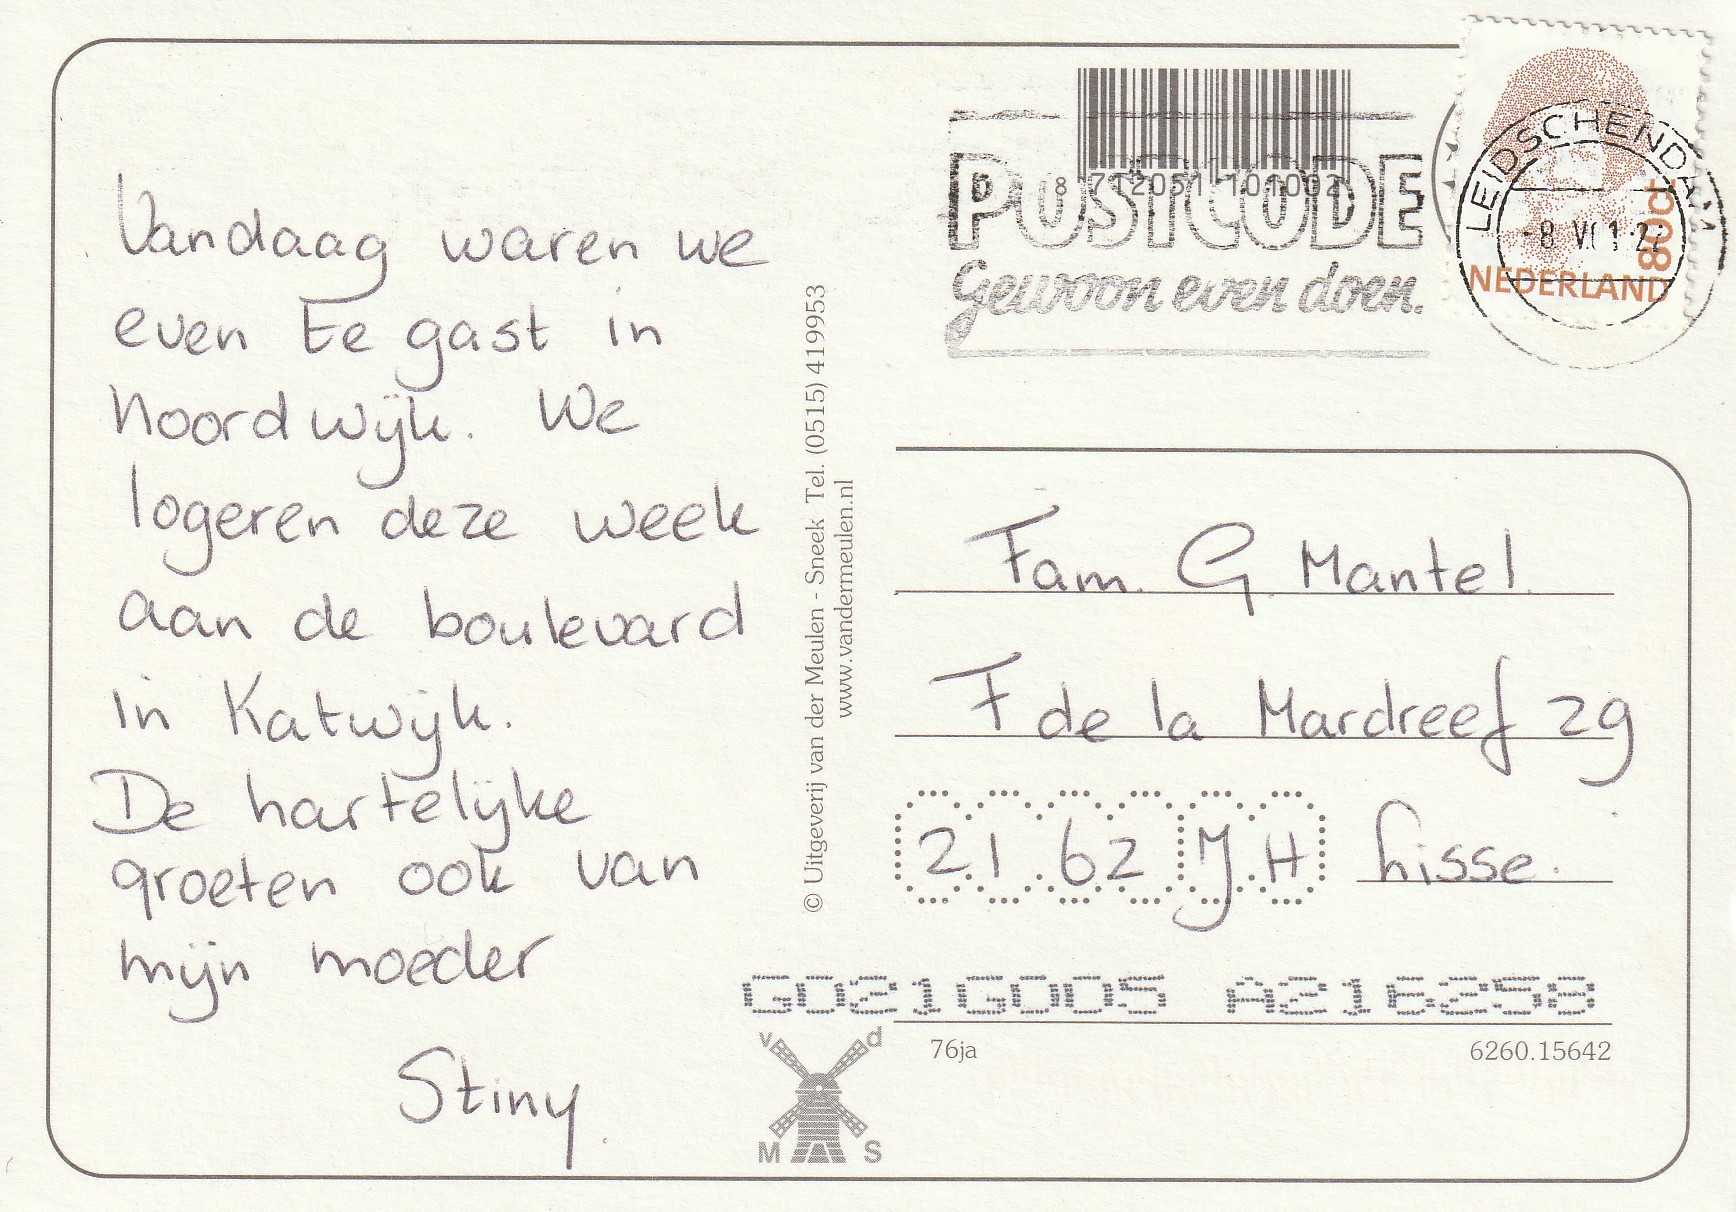 Vandaag waren we
even te gast in
Noordwijk. We
logeren deze week
aan de boulevard
in Katwijk.
De hartelijke
groeten ook van
mijn moeder
Stiny.
© Uitgeverij van der Meulen - Sneek Tel. (0515) 419953
www.vandermeulen.nl
8 712051 101002
POSTCODE
Gewoon even doen.
LEIDSCHENDAM
80ct
NEDERLAND
Fam. G. Mantel.
F de la Mardreef 29
2162 JH Lisse.
G021G005 A216258
76ja
6260.15642
v d
M S